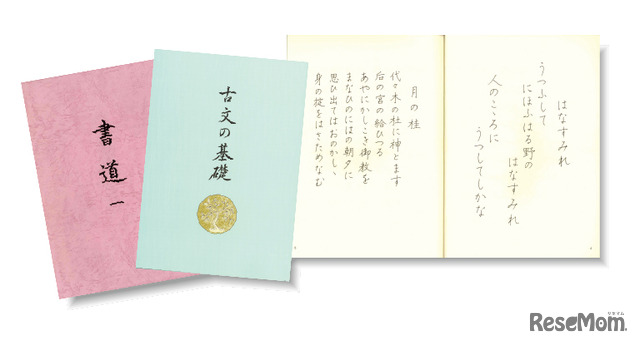 書道 一
古文の基礎
はなすみれ
うつふして
にほふはる野の
はなすみれ
人のこゝろに
うつしてしかな
月の桂
代々木の杜に神とます
后の宮の給ひつる
あやにかしこき御教を
まなひのにはの朝夕に
思ひ出てはおのかしゝ
身の掟をはさためなむ
リセマム
ReseMom.